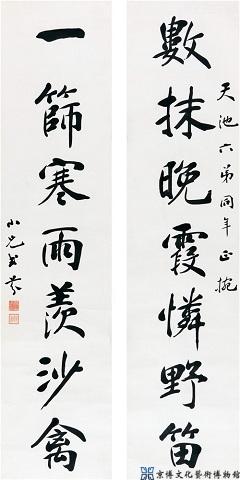 數抹晚霞憐野笛
天池六弟同年正捥
一篩寒雨羨沙禽
小兄世芬
京博文化藝術博物館